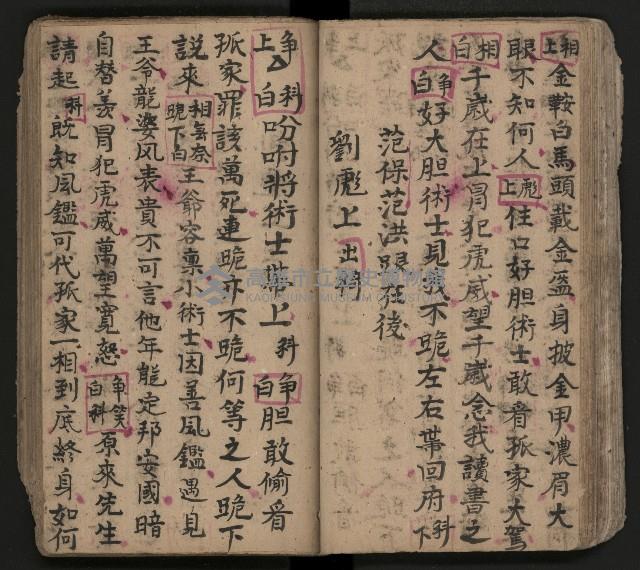 相上 金鞍白馬頭戴金盔身披金甲濃眉大
眼不知何人 彪上 住口好胆術士敢看孤家大駕
相白 千歲在上冒犯虎威望千歲念我讀書之
人 争白 好大胆術士見孤不跪左右帶回府 科下
范保范洪跟在後
劉彪上 出
争上 科白 吩咐將術士帶上 科 争白 胆敢偷看
孤家罪該萬死連跪可不跪何等之人跪下
說來 相無奈跪下白 王爺容禀小術士因善風鑑遇見
王爷龍姿风表貴不可言他年能定邦安國暗
自替羡冒犯虎威萬望寬恕 争笑白科 原來先生
請起 科 既知風鑑可代孤家一相到底終身如何
高雄市立歷史博物館
KAOHSIUNG MUSEUM OF HISTORY